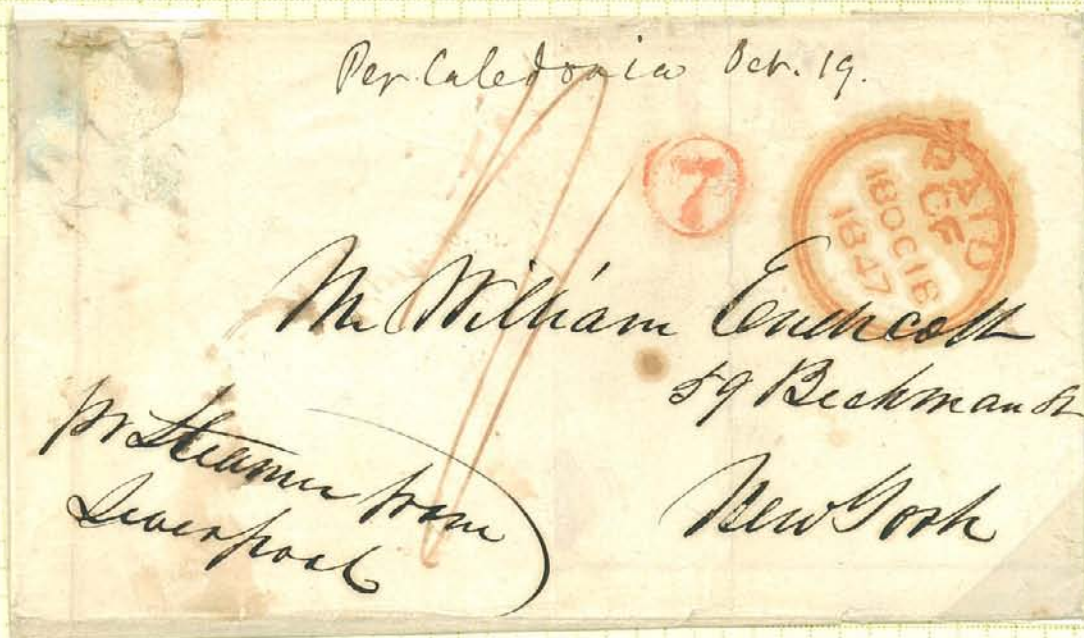 Per Caledonia Oct. 19.
7
PAID
EF
18 OC 18
1847
Mr William Endicott
59 Beekman St
New York
pr Steamer from
Liverpool